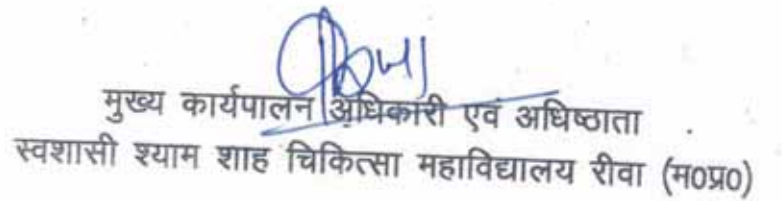 मुख्य कार्यपालन अधिकारी एवं अधिष्ठाता
स्वशासी श्याम शाह चिकित्सा महाविद्यालय रीवा (म०प्र०)